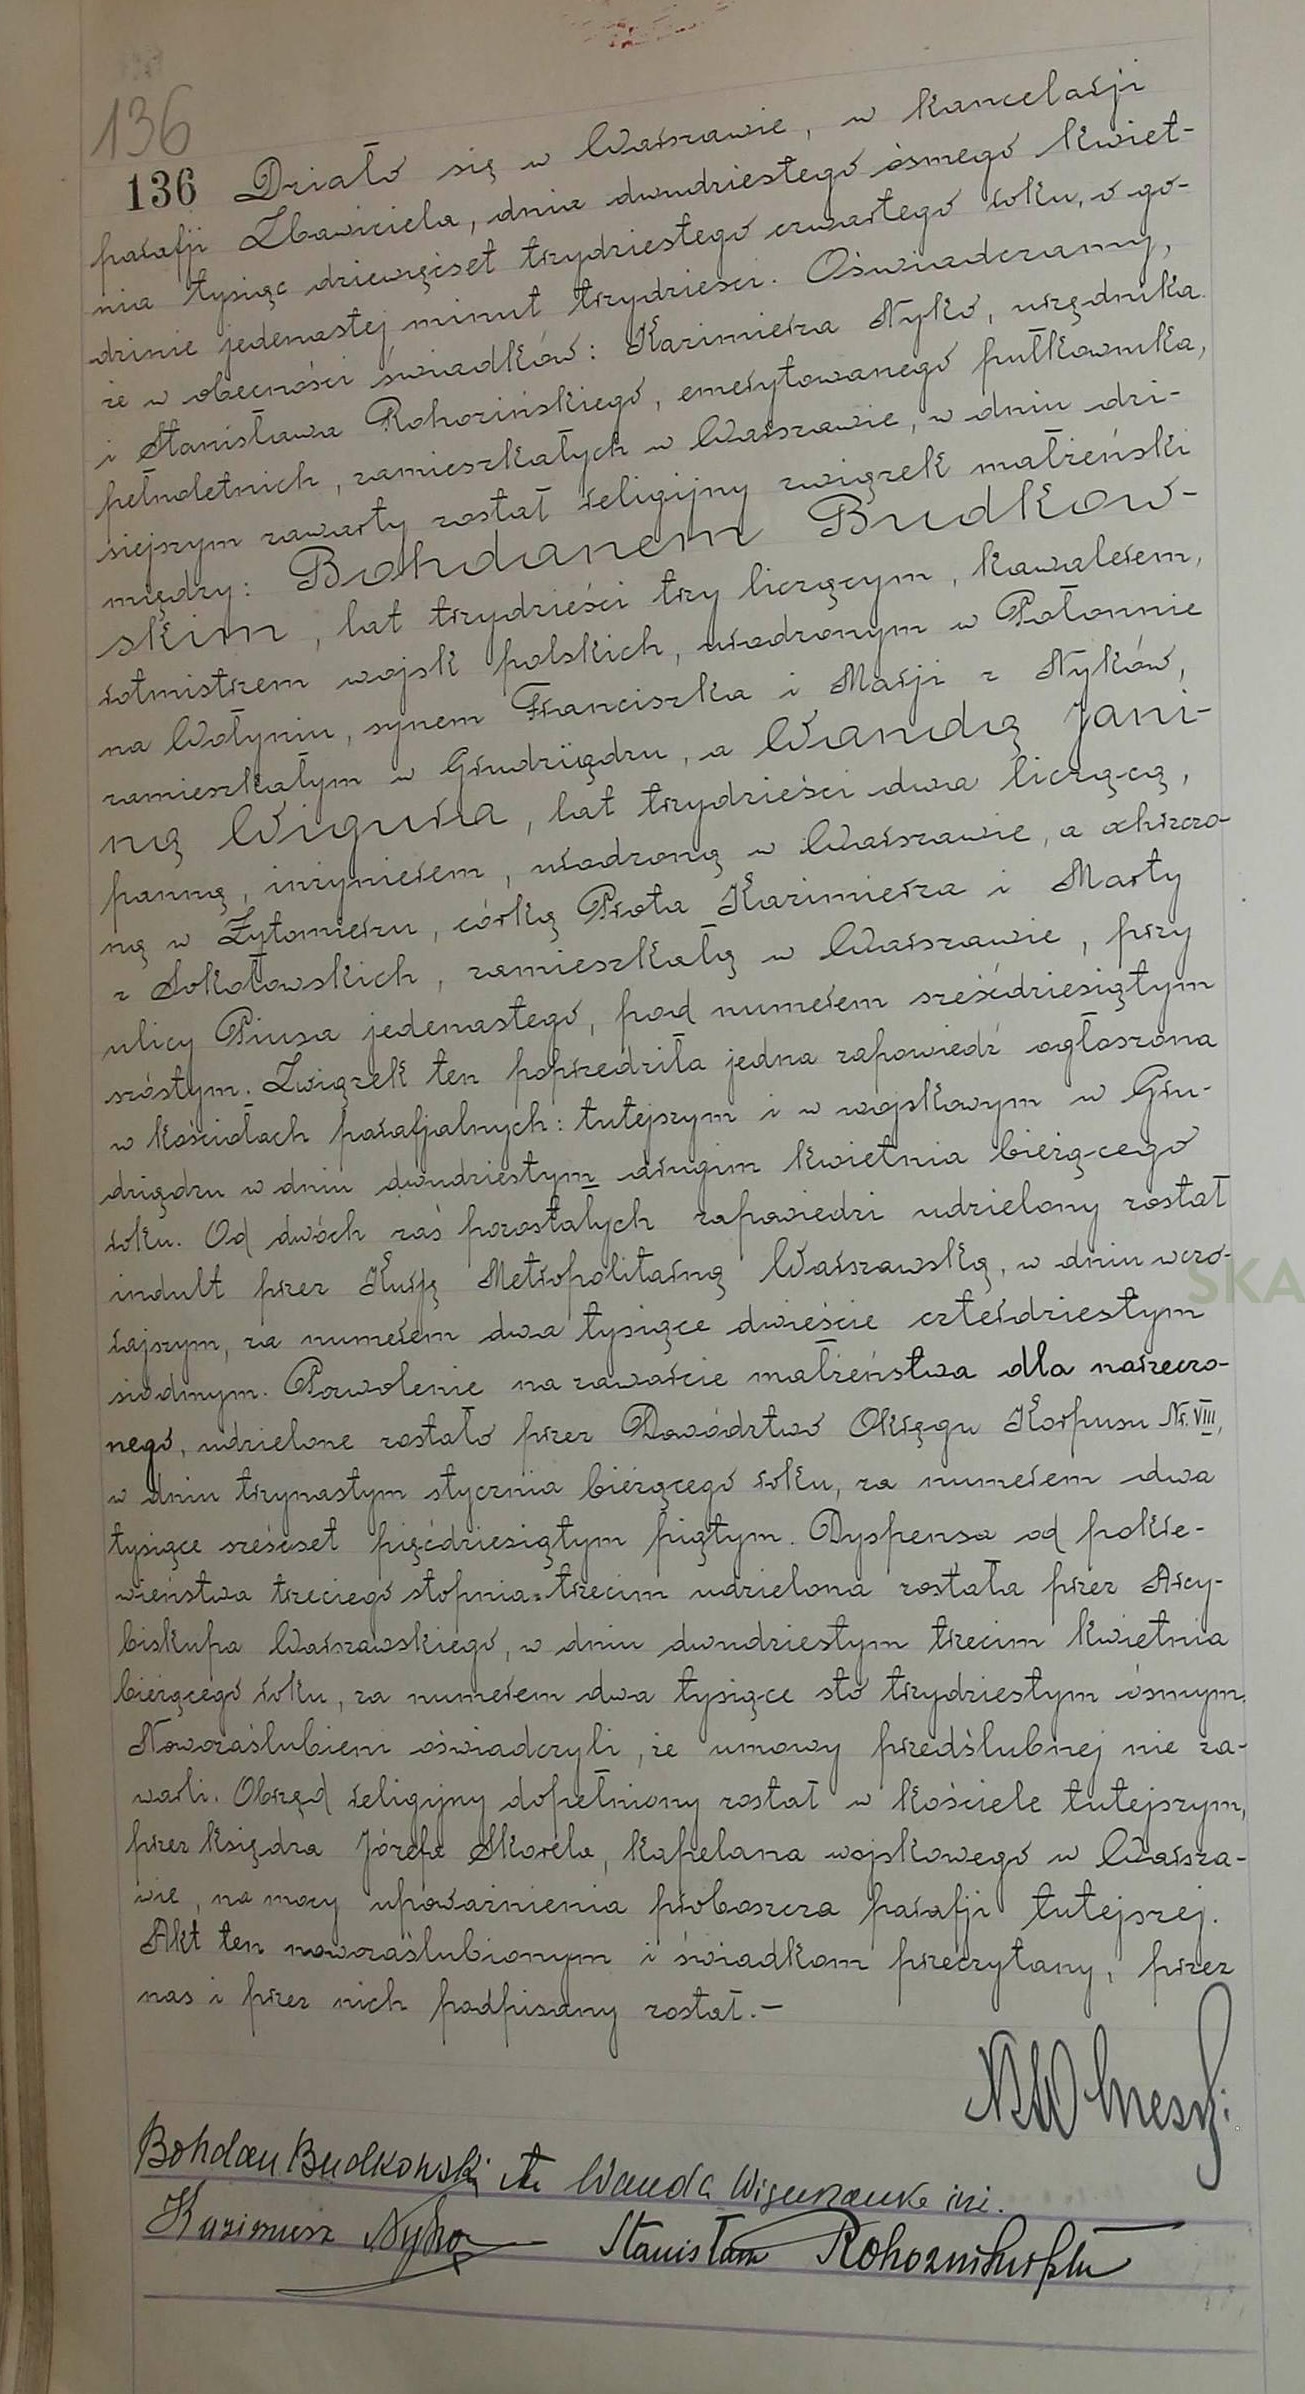 136
136 Działo się w Warszawie, w kancelarji
parafji Zbawiciela, dnia dwudziestego ósmego kwiet-
nia tysiąc dziewięćset trzydziestego czwartego roku, o go-
dzinie jedenastej minut trzydzieści. Oświadczamy,
że w obecności świadków: Kazimierza Nyko, urzędnika
i Stanisława Rohozińskiego, emerytowanego pułkownika,
pełnoletnich, zamieszkałych w Warszawie, w dniu dzi-
siejszym zawarty został religijny związek małżeński
między: Bohdanem Budkow-
skim, lat trzydzieści trzy liczącym, kawalerem,
rotmistrzem wojsk polskich, urodzonym w Połonnie
na Wołyniu, synem Franciszka i Marji z Nyków,
zamieszkałym w Grudziądzu, a Wandą Jani-
ną Wigura, lat trzydzieści dwa liczącą,
panną, inżynierem, urodzoną w Warszawie, a ochrzczo-
ną w Żytomierzu, córką Prota Kazimierza i Marty
z Sokołowskich, zamieszkałą w Warszawie, przy
ulicy Piusa jedenastego, pod numerem sześćdziesiątym
szóstym. Związek ten poprzedziła jedna zapowiedź ogłoszona
w kościołach parafjalnych: tutejszym i w wojskowym w Gru-
dziądzu w dniu dwudziestym drugim kwietnia bieżącego
roku. Od dwóch zaś pozostałych zapowiedzi udzielony został
indult przez Kurję Metropolitalną Warszawską, w dniu wczo-
rajszym, za numerem dwa tysiące dwieście czterdziestym
siódmym. Pozwolenie na zawarcie małżeństwa dla narzeczo-
nego, udzielone zostało przez Dowództwo Okręgu Korpusu Nr. VIII,
w dniu trzynastym stycznia bieżącego roku, za numerem dwa
tysiące sześćset pięćdziesiątym piątym. Dyspensa od pokre-
wieństwa trzeciego stopnia z trzecim udzielona została przez Arcy-
biskupa Warszawskiego, w dniu dwudziestym trzecim kwietnia
bieżącego roku, za numerem dwa tysiące sto trzydziestym ósmym.
Nowozaślubieni oświadczyli, że umowy przedślubnej nie za-
warli. Obrzęd religijny dopełniony został w kościele tutejszym,
przez księdza Józefa Skorela, kapelana wojskowego w Warsza-
wie, na mocy upoważnienia proboszcza parafji tutejszej.
Akt ten nowozaślubionym i świadkom przeczytany, przez
nas i przez nich podpisany został.—
Bohdan Budkowski Wanda Wigurzanka inż.
Kazimierz Nyko Stanisław Rohoziński płk
SKA